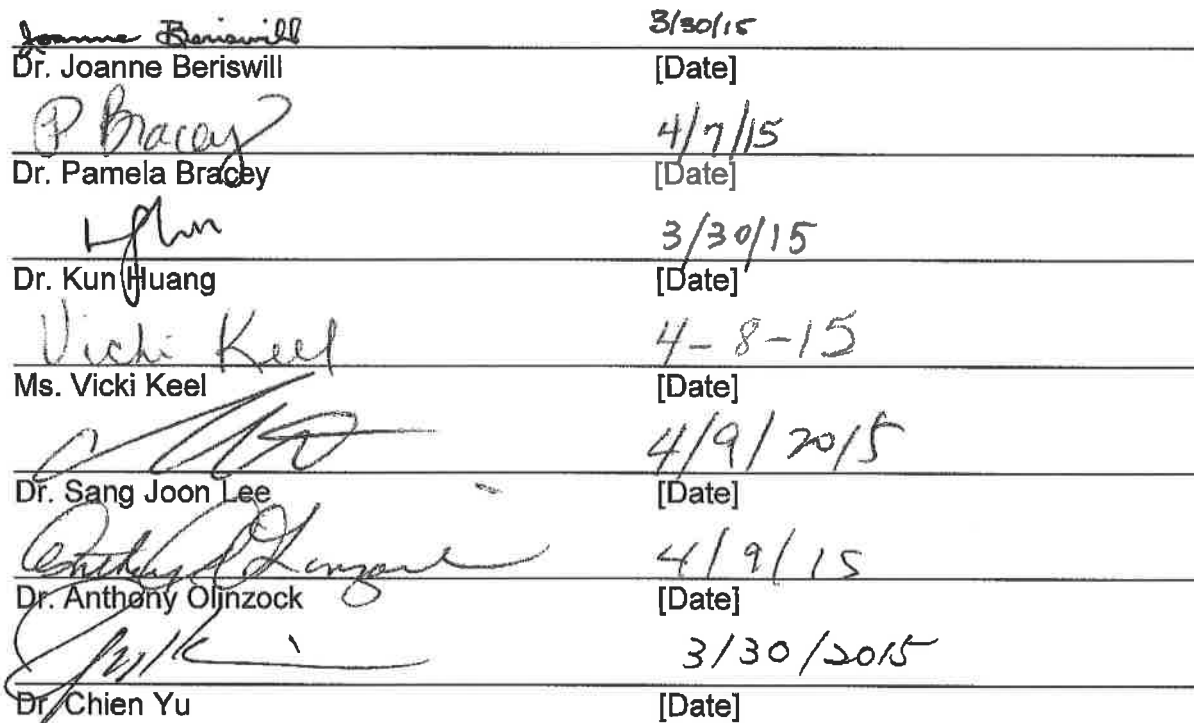 Joanne Beriswill 3/30/15
Dr. Joanne Beriswill [Date]
P Bracey 4/7/15
Dr. Pamela Bracey [Date]
3/30/15
Dr. Kun Huang [Date]
Vicki Keel 4-8-15
Ms. Vicki Keel [Date]
4/9/2015
Dr. Sang Joon Lee [Date]
4/9/15
Dr. Anthony Olinzock [Date]
3/30/2015
Dr. Chien Yu [Date]